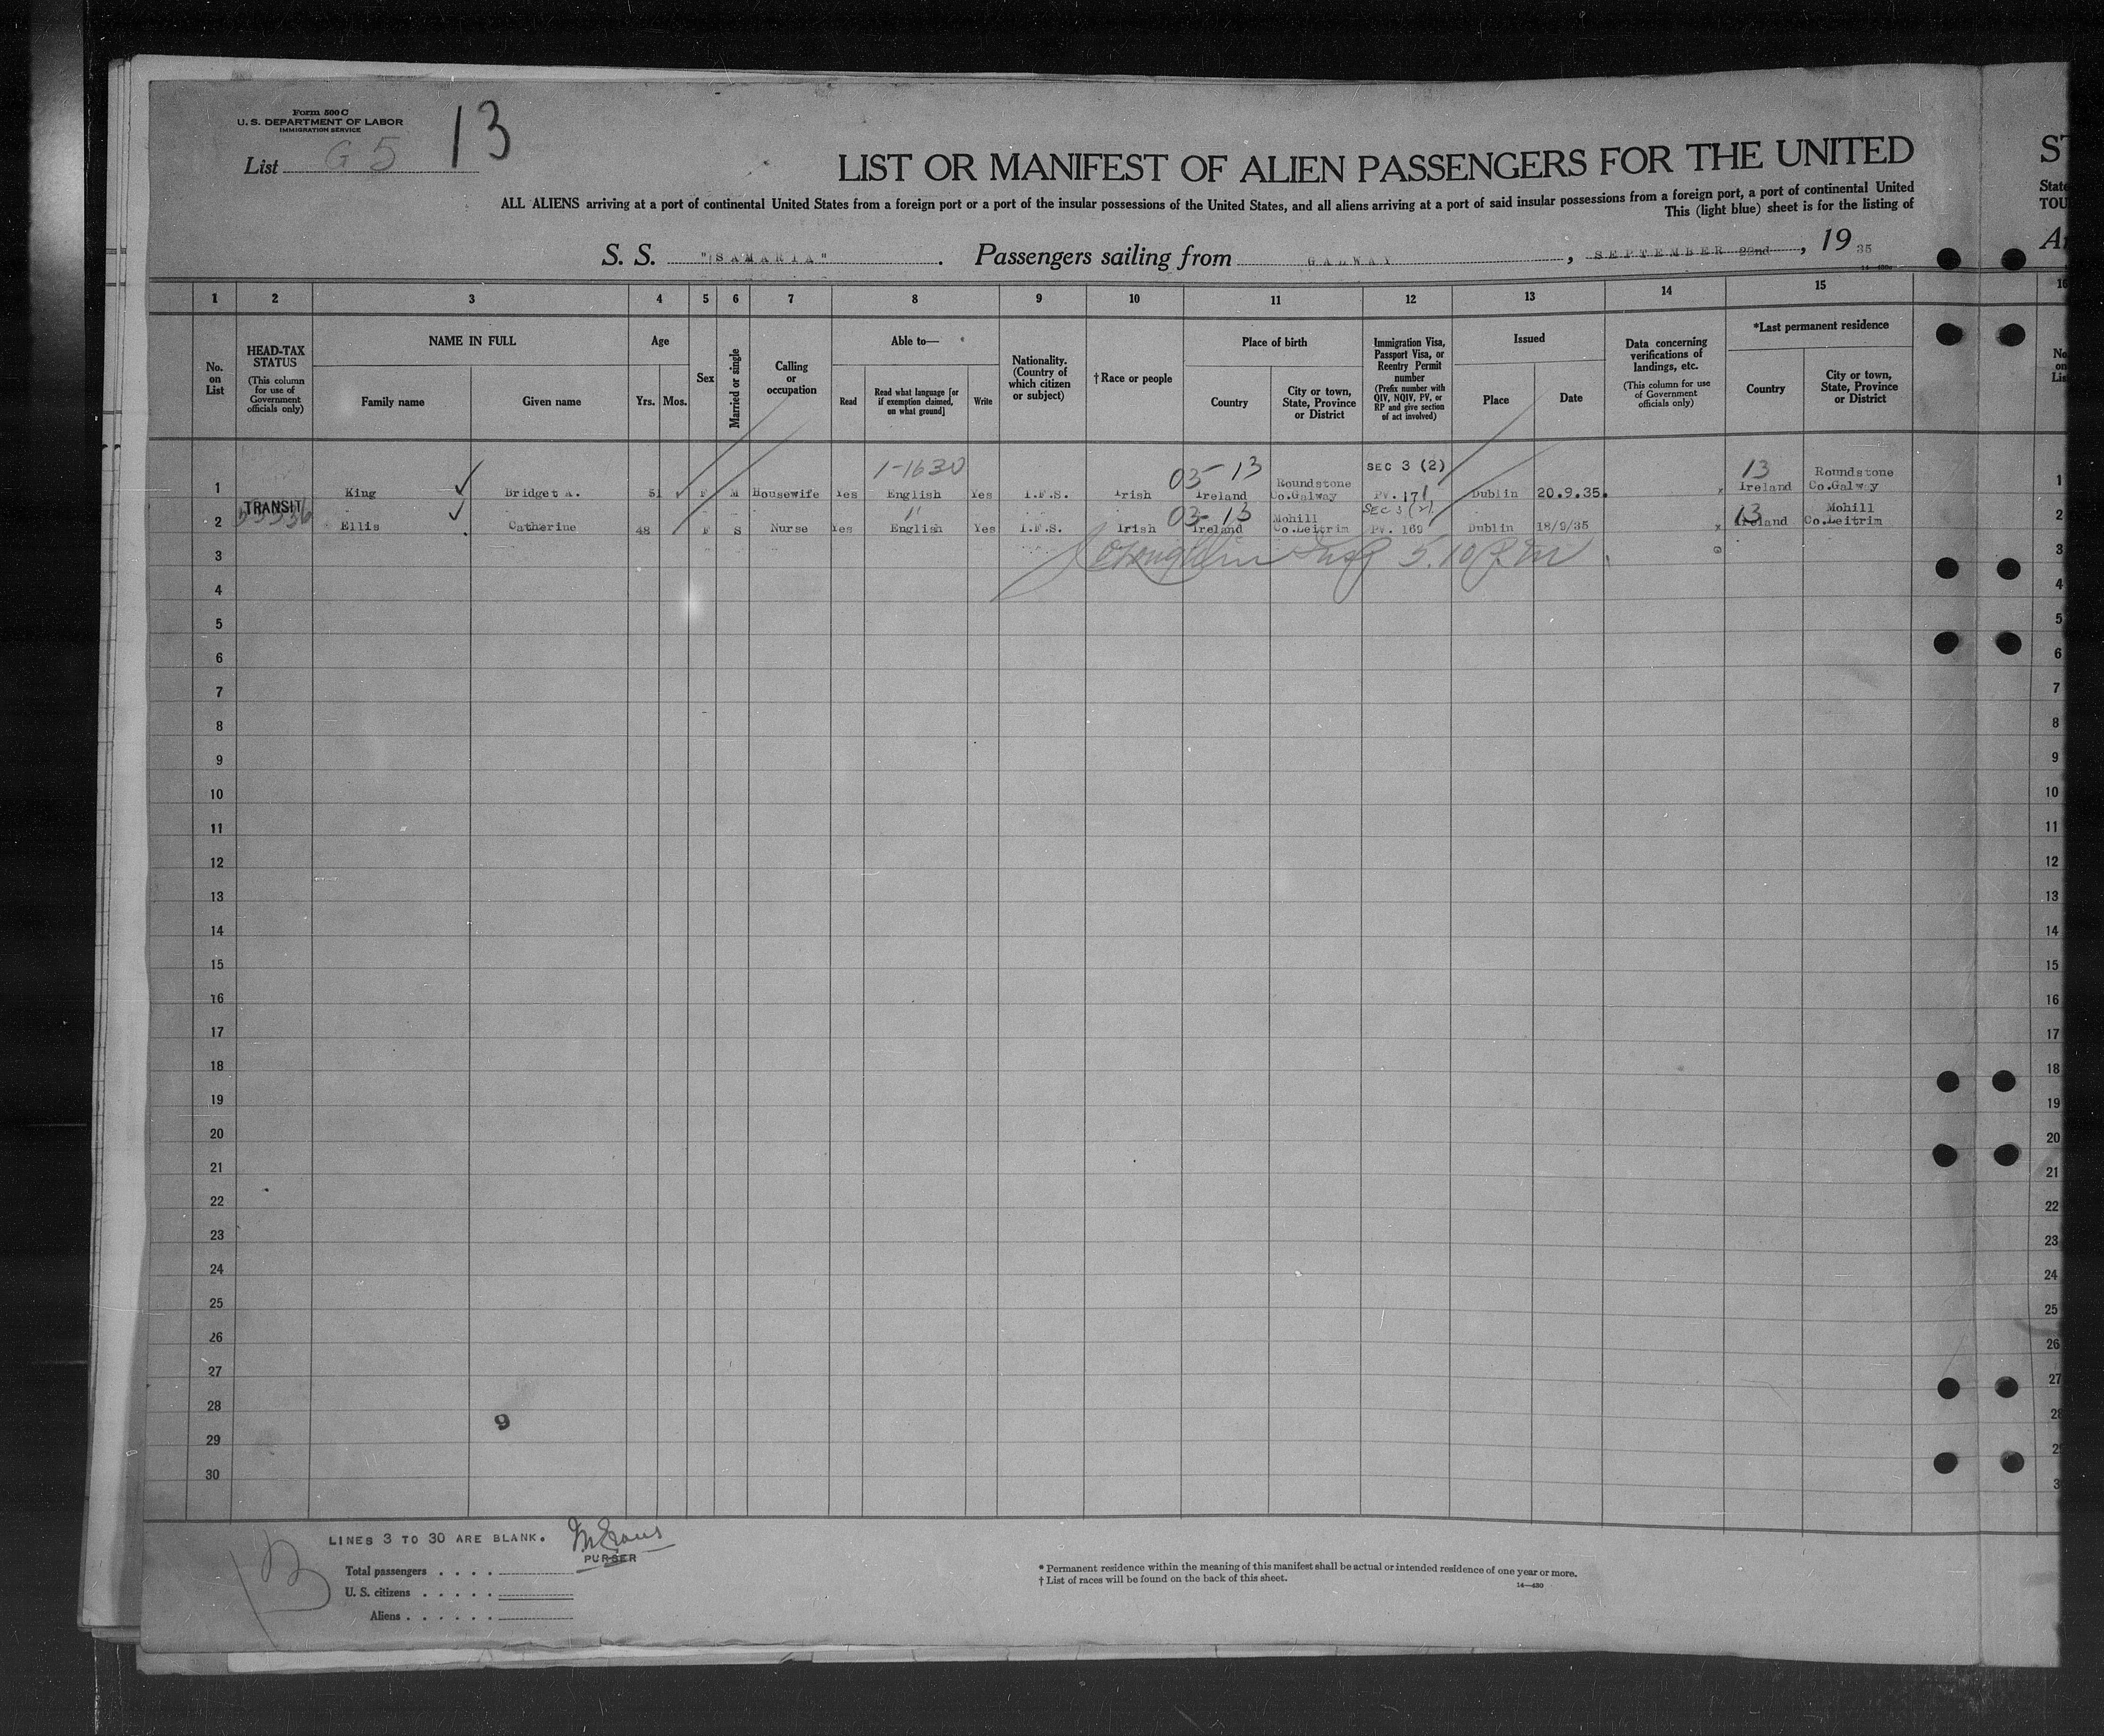 Form 500 C
U. S. DEPARTMENT OF LABOR
IMMIGRATION SERVICE
List G 5 13
LIST OR MANIFEST OF ALIEN PASSENGERS FOR THE UNITED
ST
ALL ALIENS arriving at a port of continental United States from a foreign port or a port of the insular possessions of the United States, and all aliens arriving at a port of said insular possessions from a foreign port, a port of continental United
State
This (light blue) sheet is for the listing of
TOU
S. S. "SAMARIA". Passengers sailing from GALWAY, SEPTEMBER 22nd, 19 35
14—430
1 2 3 4 5 6 7 8 9 10 11 12 13 14 15 16
No. on List
HEAD-TAX STATUS
(This column for use of Government officials only)
NAME IN FULL
Family name
Given name
Age
Yrs. Mos.
Sex
Married or single
Calling or occupation
Able to—
Read
Read what language [or if exemption claimed, on what ground]
Write
Nationality. (Country of which citizen or subject)
† Race or people
Place of birth
Country
City or town, State, Province or District
Immigration Visa, Passport Visa, or Reentry Permit number
(Prefix number with QIV, NQIV, PV, or RP and give section of act involved)
Issued
Place
Date
Data concerning verifications of landings, etc.
(This column for use of Government officials only)
*Last permanent residence
Country
City or town, State, Province or District
No. on List
1-1630 03-13 SEC 3 (2) 13
1 King Bridget A. 51 F M Housewife Yes English Yes I.F.S. Irish Ireland Roundstone Co.Galway PV. 171 Dublin 20.9.35. x Ireland Roundstone Co.Galway 1
TRANSIT 03-13 SEC 3 (2) 13
2 Ellis Catherine 48 F S Nurse Yes English Yes I.F.S. Irish Ireland Mohill Co.Leitrim PV. 169 Dublin 18/9/35 x Ireland Mohill Co.Leitrim 2
3 5.10 P.M 3
4 4
5 5
6 6
7 7
8 8
9 9
10 10
11 11
12 12
13 13
14 14
15 15
16 16
17 17
18 18
19 19
20 20
21 21
22 22
23 23
24 24
25 25
26 26
27 27
28 9 28
29
30
LINES 3 TO 30 ARE BLANK.
PURSER
Total passengers . . . .
U. S. citizens . . . . .
Aliens . . . . . .
* Permanent residence within the meaning of this manifest shall be actual or intended residence of one year or more.
† List of races will be found on the back of this sheet.
14—430